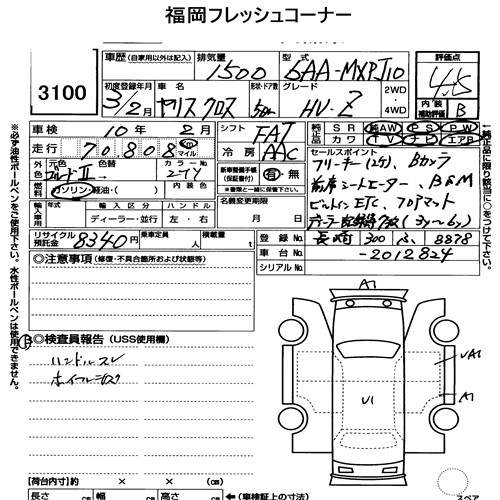 福岡フレッシュコーナー
3100
車歴 (自家用以外は記入) 排気量 1500 型式 6AA-MXPJ10
初度登録年月 3/2月 車名 ヤリスクロス 形状・ドア数 5 グレード HV-Z 2WD・4WD
評価点 4.5
内/装 補助評価 B
車検 10年 2月 シフト FAT
走行 70808 km マイル 冷房 AAC
純正品 SR 純AW PS PW
カワ TV ナビ エアB
外色 元色 ゴールドII 色替 カラーNo. 2TY
燃料 ガソリン・軽油・( )
新車整備手帳(保証書付) 有・無
輸入車用 年式 輸入区分 ハンドル
ディーラー・並行 左・右
名義変更期限 月 日
リサイクル預託金 8340円 乗車定員 人 積載量 t
セールスポイント
フリーキー(2ケ)、Bカメラ
前席シートヒーター、BSM
ビルトインETC、フロアマット
ディーラー記録簿7枚(3y〜6y)
登録No. 長崎 300 8878
車台No. -2012824
シリアルNo.
◎注意事項 (修復・不具合箇所および状態等)
◎検査員報告 (USS使用欄)
ハンドルスレ
ホイールキズ
A1
UA1
A1
U1
【荷台内寸】 × × (cm)
長さ cm 幅 cm 高さ cm
(車検証上の寸法)
スペア
※必ず油性ボールペンをご使用下さい。水性ボールペンは使用できません。
(純正品に○をつけて下さい。)